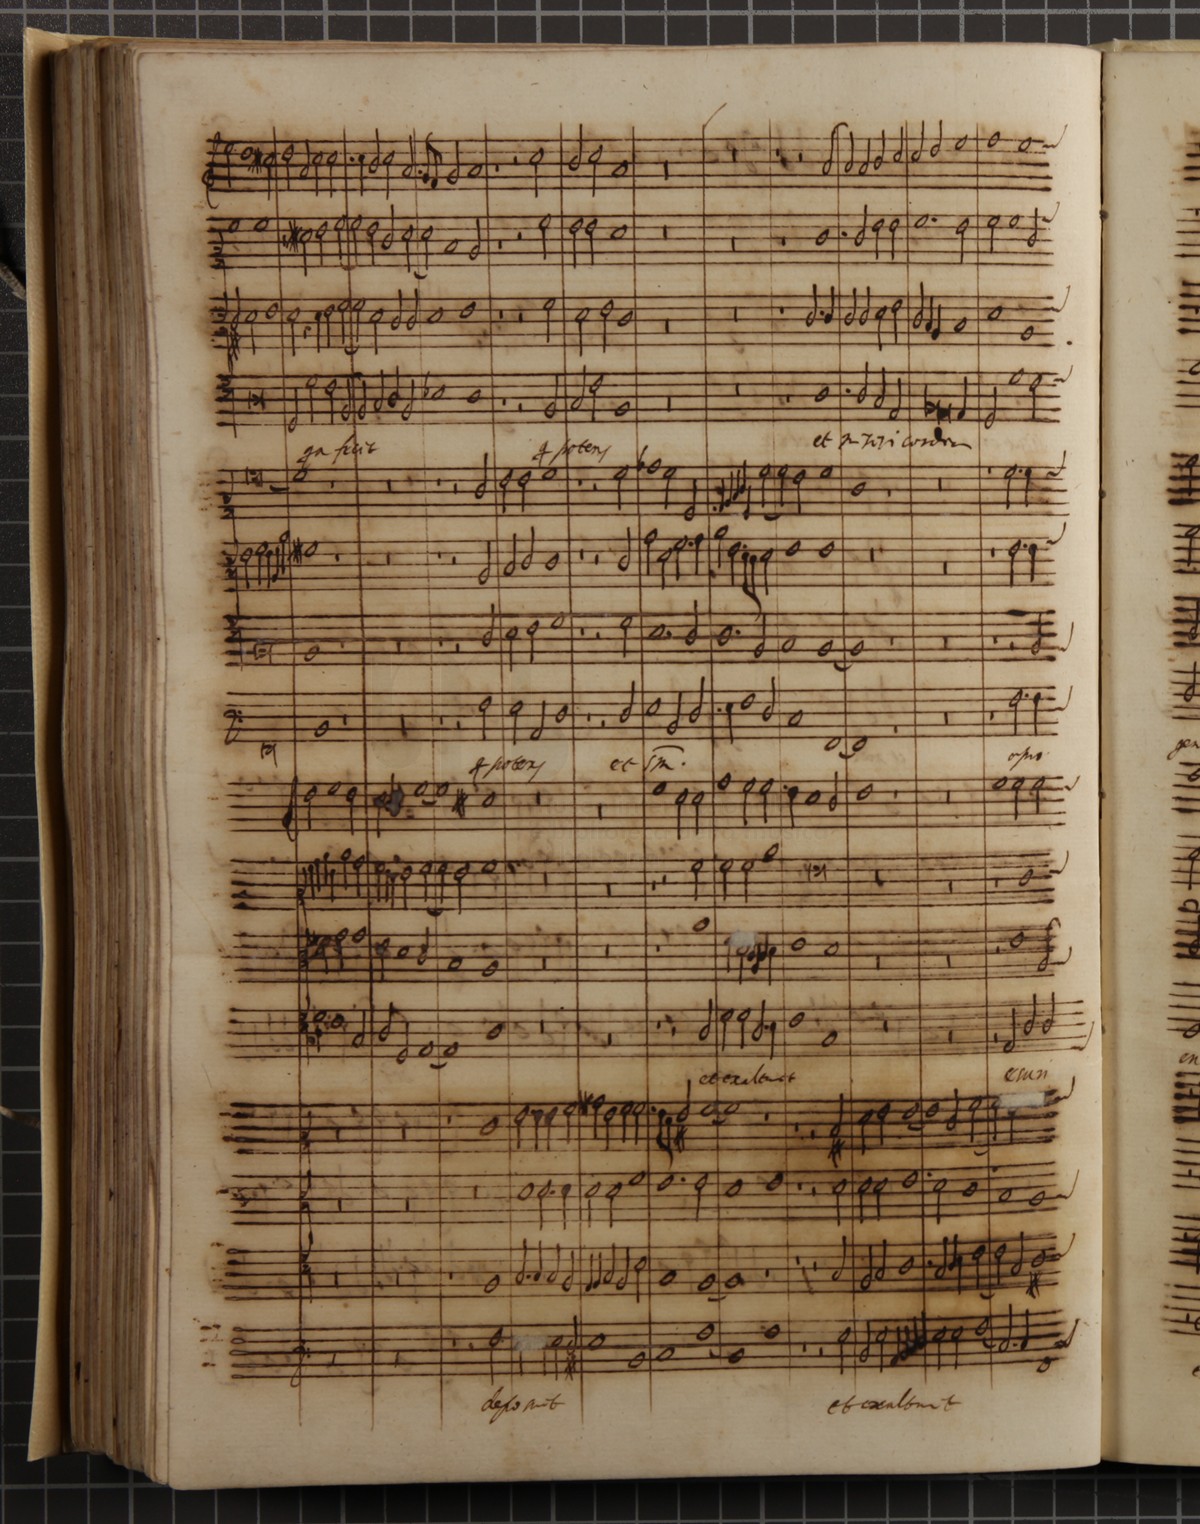 qa fecit
q potens
et misericordia
q potens et sm.
opus
et exaltavit
esuri
deposuit
et exaltavit